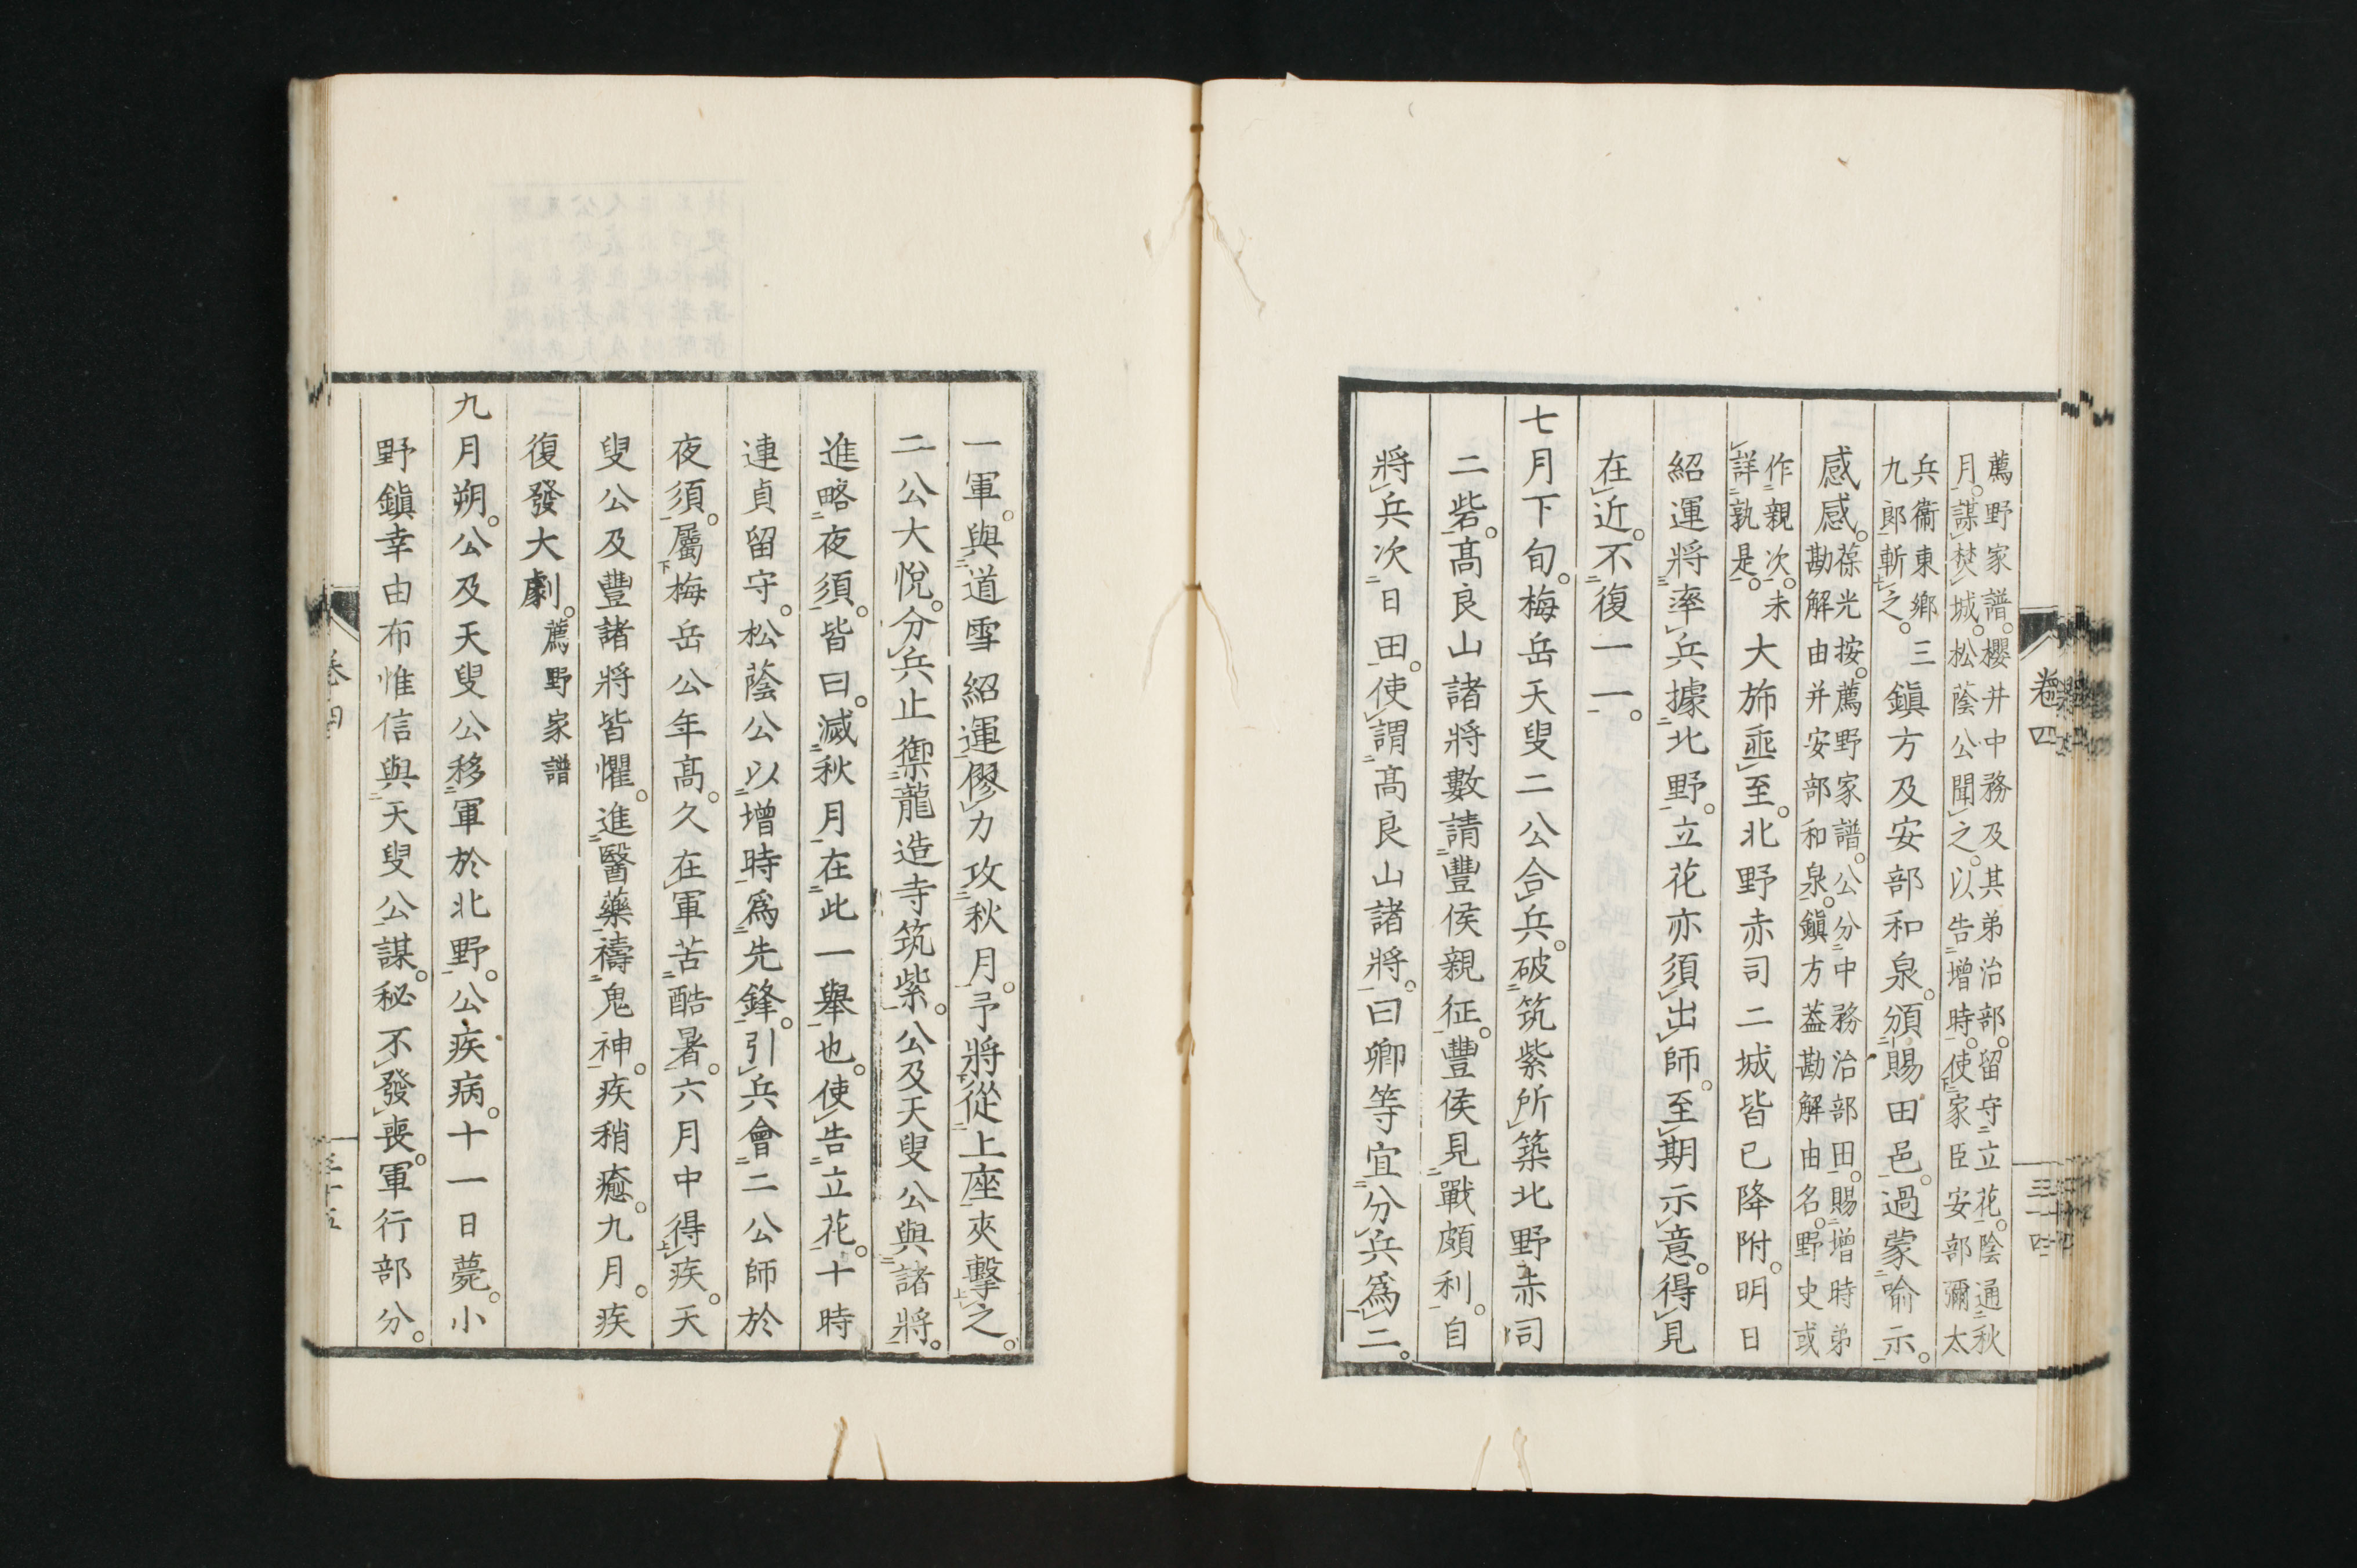 薦野家譜。櫻井中務及其弟治部。留守立花。陰通秋
月。謀焚城。松蔭公聞之。以告增時。使家臣安部彌太
兵衞東鄉三
九郎斬之。鎭方及安部和泉。頒賜田邑。過蒙喻示。
感感。葆光按。薦野家譜。公分中務治部田。賜增時弟
勘解由并安部和泉。鎭方蓋勘解由名。野史或
作親次。未
詳孰是。大斾亟至。北野赤司二城皆已降附。明日
紹運將率兵據北野。立花亦須出師。至期示意。得見
在近。不復一一。
七月下旬。梅岳天叟二公合兵。破筑紫所築北野赤司
二砦。高良山諸將數請豐侯親征。豐侯見戰頗利。自
將兵次日田。使謂高良山諸將。曰卿等宜分兵爲二。
卷四
三十四
一軍。與道雪紹運僇力攻秋月。予將從上座夾擊之。
二公大悅。分兵止禦龍造寺筑紫。公及天叟公與諸將。
進略夜須。皆曰。滅秋月在此一擧也。使告立花。十時
連貞留守。松蔭公以增時爲先鋒。引兵會二公師於
夜須。屬梅岳公年高。久在軍苦酷暑。六月中得疾。天
叟公及豐諸將皆懼。進醫藥禱鬼神。疾稍癒。九月。疾
復發大劇。薦野家譜
九月朔。公及天叟公移軍於北野。公疾病。十一日薨。小
野鎭幸由布惟信與天叟公謀。秘不發喪。軍行部分。
卷四
三十五